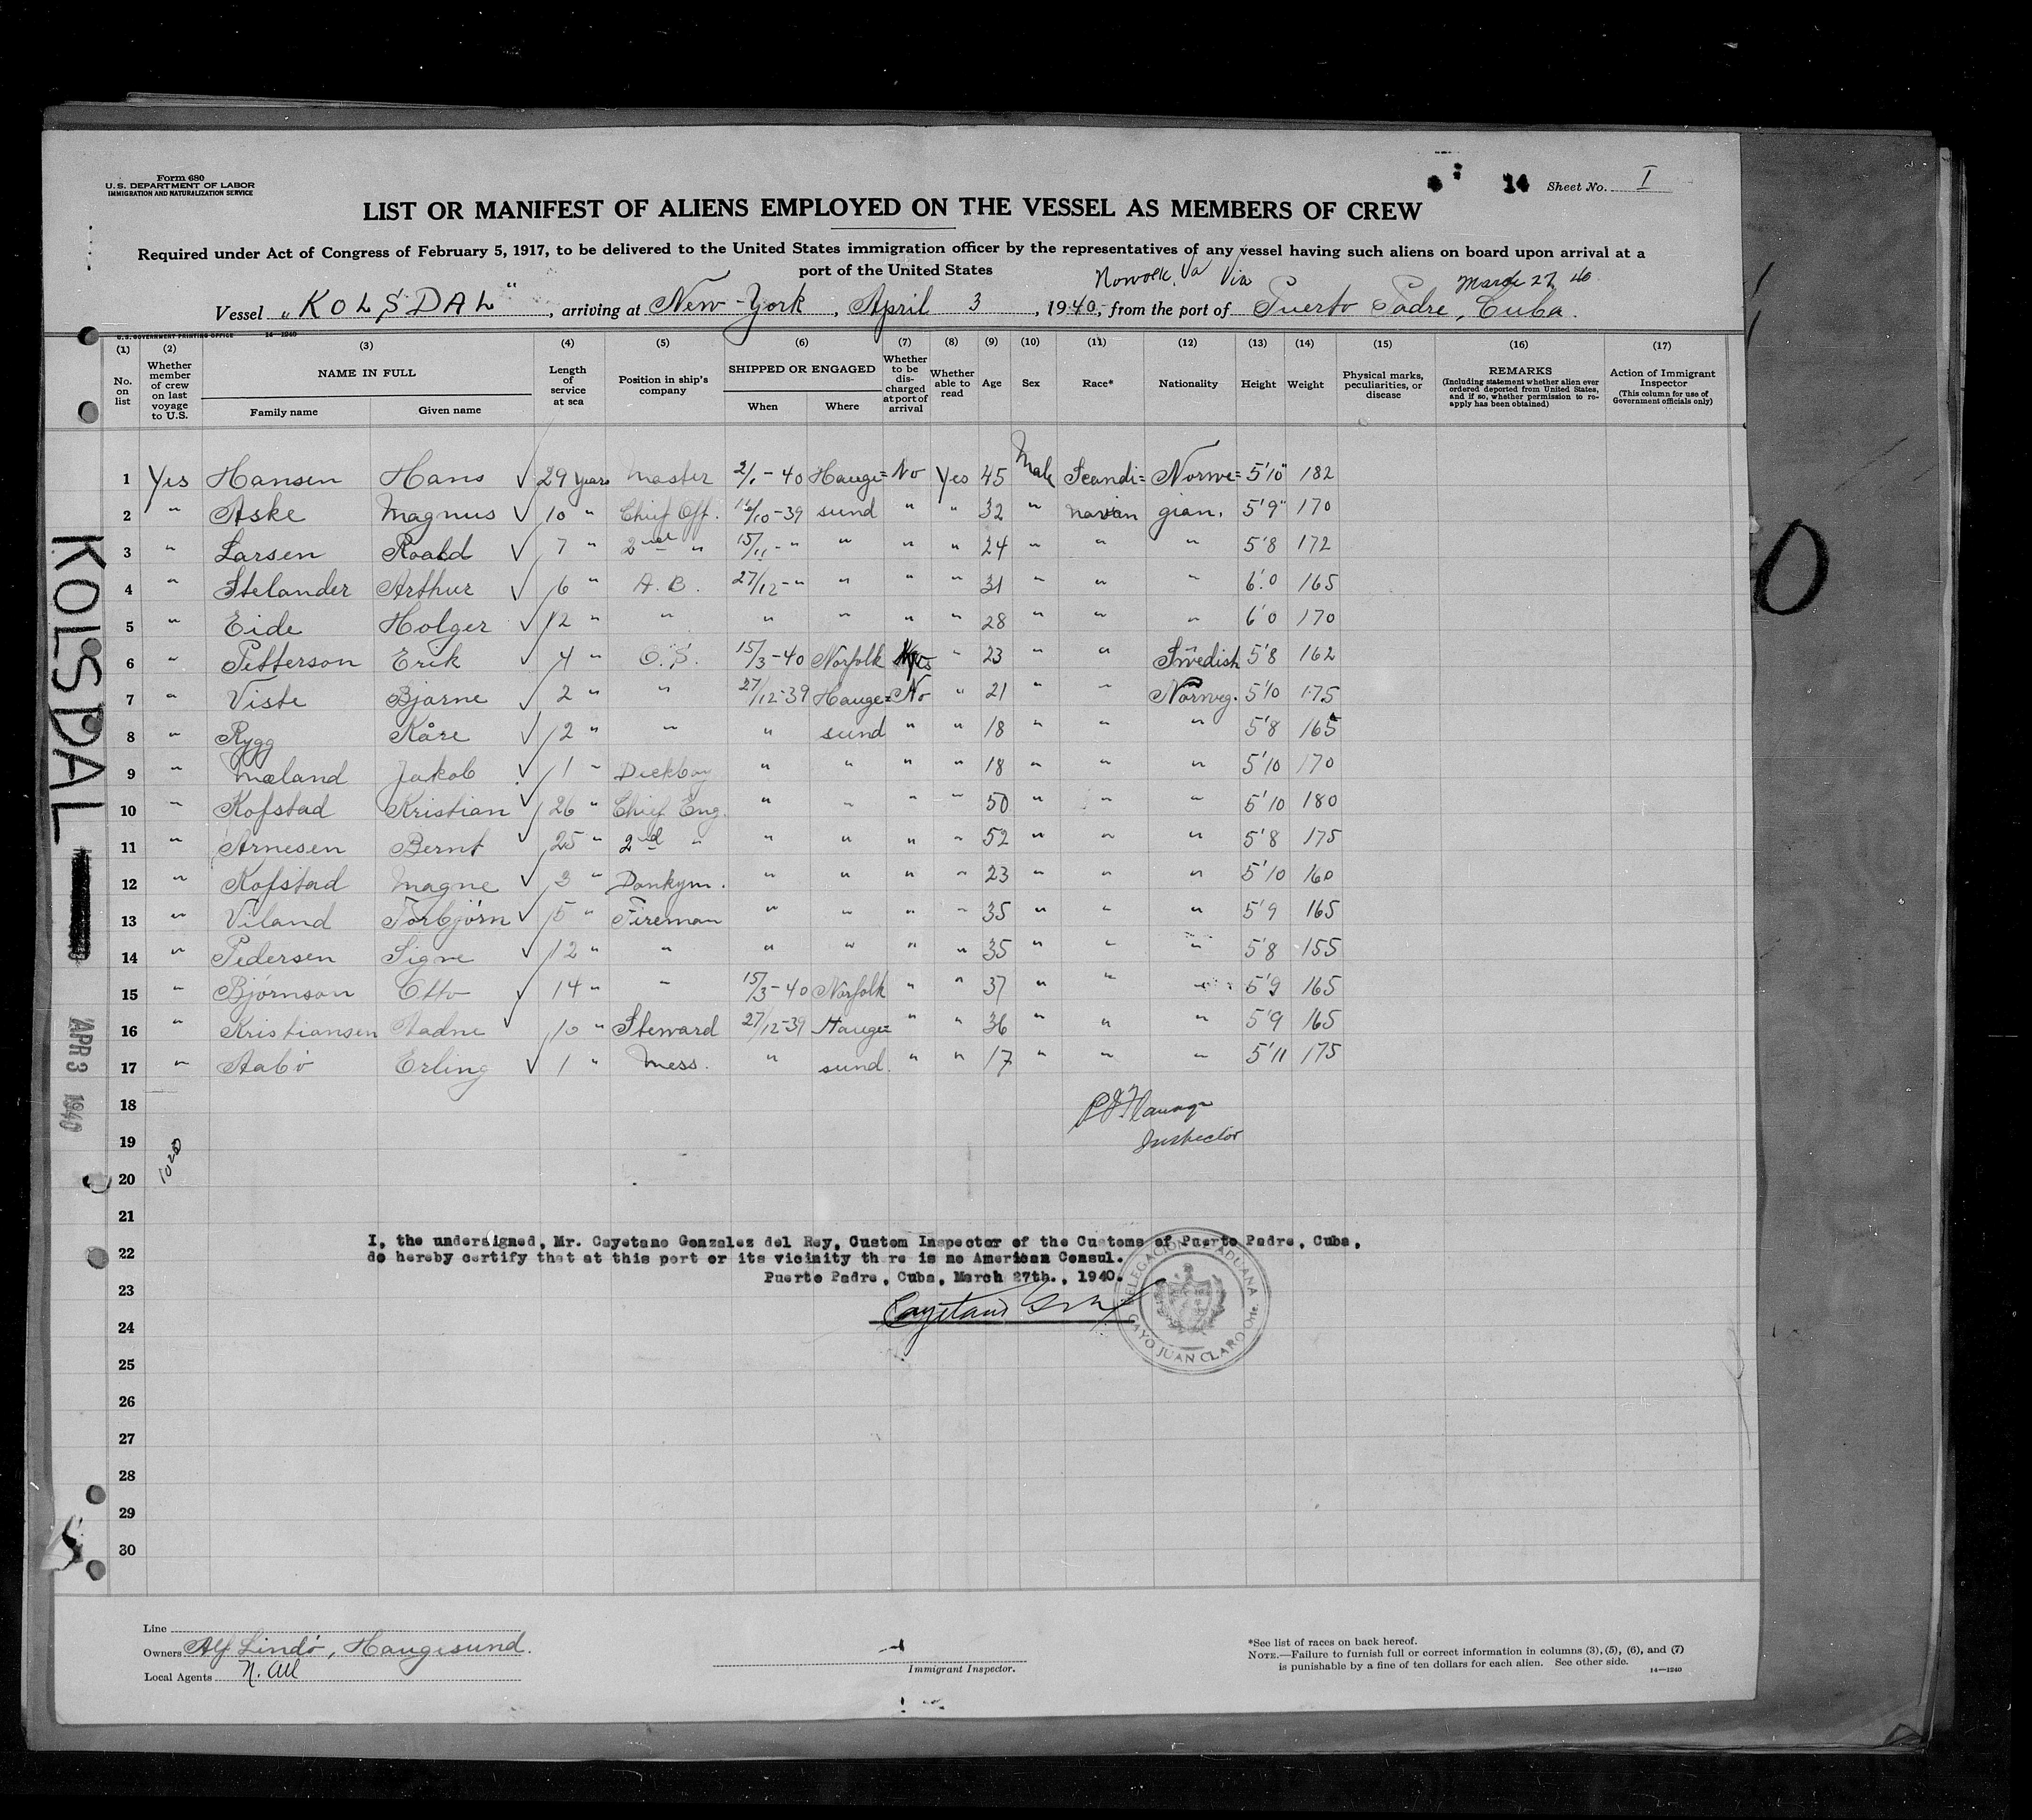 Form 680
U. S. DEPARTMENT OF LABOR
IMMIGRATION AND NATURALIZATION SERVICE
14 Sheet No. I
LIST OR MANIFEST OF ALIENS EMPLOYED ON THE VESSEL AS MEMBERS OF CREW
Required under Act of Congress of February 5, 1917, to be delivered to the United States immigration officer by the representatives of any vessel having such aliens on board upon arrival at a
port of the United States
Norfolk, Va Via March 27, 40
Vessel „KOLSDAL“, arriving at New-York, April 3, 1940, from the port of Puerto Padre, Cuba.
U. S. GOVERNMENT PRINTING OFFICE 14—1240
(1) No. on list
(2) Whether member of crew on last voyage to U.S.
(3) NAME IN FULL
Family name Given name
(4) Length of service at sea
(5) Position in ship's company
(6) SHIPPED OR ENGAGED
When Where
(7) Whether to be discharged at port of arrival
(8) Whether able to read
(9) Age
(10) Sex
(11) Race*
(12) Nationality
(13) Height
(14) Weight
(15) Physical marks, peculiarities, or disease
(16) REMARKS
(Including statement whether alien ever ordered deported from United States, and if so, whether permission to re-apply has been obtained)
(17) Action of Immigrant Inspector
(This column for use of Government officials only)
1 Yes Hansen Hans ✓ 29 years Master 2/1-40 Hauge= No Yes 45 Male Scandi= Norwe= 5'10" 182
2 " Aske Magnus ✓ 10 " Chief Off. /10-39 sund " " 32 " navian gian. 5'9" 170
3 " Larsen Roald ✓ 7 " 2nd " 15/11-" " " " 24 " " " 5'8 172
4 " Stelander Arthur ✓ 6 " A.B. 27/12-" " " " 31 " " " 6'0 165
5 " Eide Holger ✓ 12 " " " " " " 28 " " " 6'0 170
6 " Petterson Erik ✓ 4 " O.S. 15/3-40 Norfolk Yes " 23 " " Swedish 5'8 162
7 " Viste Bjarne ✓ 2 " " 27/12-39 Hauge= No " 21 " " Norweg. 5'10 175
8 " Rygg Kåre ✓ 2 " " " sund " " 18 " " " 5'8 165
9 " Mæland Jakob ✓ 1 " Deckboy " " " " 18 " " " 5'10 170
10 " Kofstad Kristian ✓ 26 " Chief Eng. " " " " 50 " " " 5'10 180
11 " Arnesen Bernt ✓ 25 " 2nd " " " " " 52 " " " 5'8 175
12 " Kofstad Magne ✓ 3 " Donkym. " " " " 23 " " " 5'10 160
13 " Viland Torbjørn ✓ 5 " Fireman " " " " 35 " " " 5'9 165
14 " Pedersen Signe ✓ 12 " " " " " " 35 " " " 5'8 155
15 " Bjørnson Otto ✓ 14 " " 15/3-40 Norfolk " " 37 " " " 5'9 165
16 " Kristiansen ✓ 10 " Steward 27/12-39 Hauge= " " 36 " " " 5'9 165
17 " Aabø Erling ✓ 1 " Mess. " sund. " " 17 " " " 5'11 175
18
19 Inspector
20
21
22
23
24
25
26
27
28
29
30
I, the undersigned, Mr. Cayetano Gonzalez del Rey, Custom Inspector of the Customs of Puerto Padre, Cuba,
do hereby certify that at this port or its vicinity th re is no American Consul.
Puerto Padre, Cuba, March 27th., 1940.
Cayetano
DELEGACION ADUANA
CAYO JUAN CLARO Ote.
KOLSDAL
APR 3 1940
1020
Line
Owners Alf Lindø, Haugesund.
Local Agents
Immigrant Inspector.
*See list of races on back hereof.
NOTE.—Failure to furnish full or correct information in columns (3), (5), (6), and (7)
is punishable by a fine of ten dollars for each alien. See other side. 14—1240